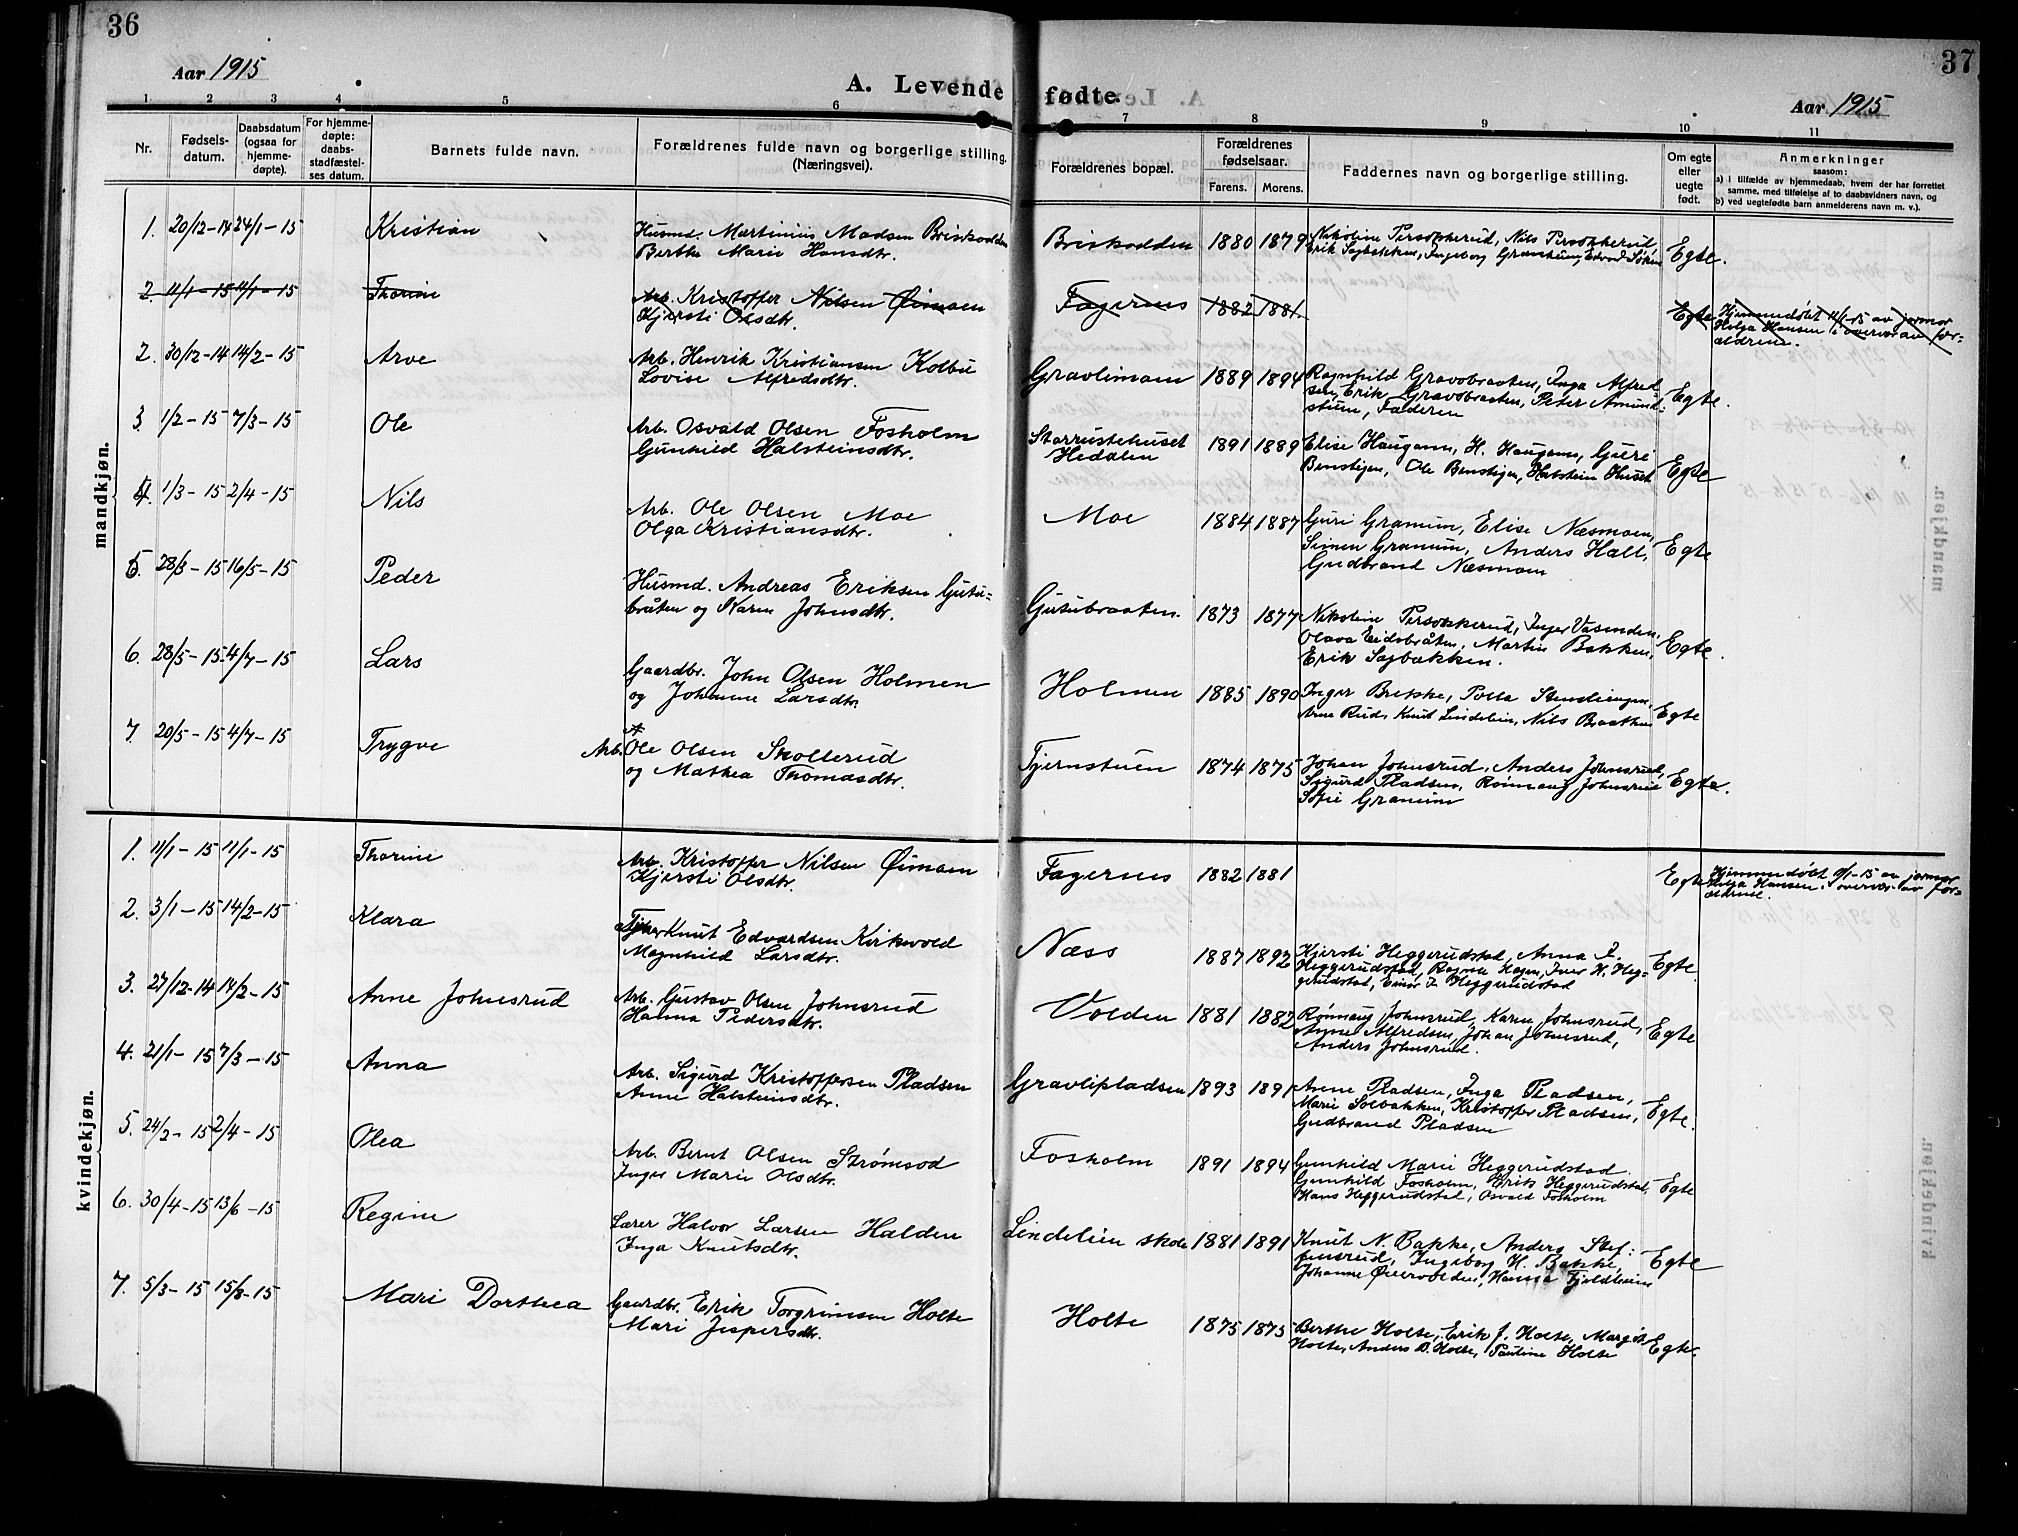 36
Aar 1915
A. Levende
1 2 3 4 5 6
Nr.
Fødsels-
datum.
Daabsdatum
(ogsaa for
hjemme-
døpte).
For hjemme-
døpte:
daabs-
stadfæstel-
ses datum.
Barnets fulde navn.
Forældrenes fulde navn og borgerlige stilling.
(Næringsvei).
mandkjøn.
1. 20/12-14 24/1-15 Kristian Husmd. Martinius Madsen Briskodden
Berthe Marie Hansdtr.
2. 11/1-15 11/1-15 Thorine Arb. Kristoffer Nilsen Øimoen
Kjersti Olsdtr.
2. 30/12-14 14/2-15 Arve Arb. Henrik Kristiansen Kolbu
Lovise Alfredsdtr.
3. 1/2-15 7/3-15 Ole Arb. Osvald Olsen Fosholm
Gunhild Halsteinsdtr.
4. 1/3-15 2/4-15 Nils Arb. Ole Olsen Moe
Olga Kristiansdtr.
5. 28/3-15 16/5-15 Peder Husmd. Andreas Eriksen Gutu-
bråten og Karen Johnsdtr.
6. 28/5-15 4/7-15 Lars Gaardbr. John Olsen Holmen
og Johanne Larsdtr.
7. 20/5-15 4/7-15 Trygve Arb. Ole Olsen Skollerud
og Mathea Thomasdtr.
kvindekjøn.
1. 11/1-15 11/1-15 Thorine Arb. Kristoffer Nilsen Øimoen
Kjersti Olsdtr.
2. 3/1-15 14/2-15 Klara Knut Edvardsen Kirkevold
Magnhild Larsdtr.
3. 27/12-14 14/2-15 Anne Johnsrud Arb. Gustav Olsen Johnsrud
Hanna Pedersdtr.
4. 21/1-15 7/3-15 Anna Arb. Sigurd Kristoffersen Pladsen
Anne Halsteinsdtr.
5. 24/2-15 2/4-15 Olea Arb. Bernt Olsen Strømsod
Inger Marie Olsdtr.
6. 30/4-15 13/6-15 Regine Lærer Halvor Larsen Halden
Inga Knutsdtr.
7. 5/3-15 15/8-15 Mari Dorthea Gaardbr. Erik Torgrimsen Holte
Mari Jespersdtr.
37
Aar 1915
fødte.
7 8 9 10 11
Forældrenes bopæl.
Forældrenes
fødselsaar.
Farens. Morens.
Faddernes navn og borgerlige stilling.
Om egte
eller
uegte
født.
Anmerkninger
saasom:
a) i tilfælde av hjemmedaab, hvem der har forrettet
samme, med tilføielse af to daabsvidners navn, og
b) ved uegtefødte barn anmelderens navn m. v.).
Briskodden 1880 1879 Nikoline Persokkerud, Nils Persokkerud,
Erik Sagbakken, Ingeborg Granheim, Edvard Egte.
Fagernes 1882 1881. Egte Hjemmedøbt 11/1-15 av jormor
Helga Hansen i overvær av for-
ældrene.
Gravlimoen 1889 1894 Ragnhild Gravobraaten, Inga Alfred-
sen, Erik Gravobraaten, Peter Amund-
stuen, Faderen Egte.
Storrustehuset
Hedalen 1891 1889 Elise Haugann, H. Haugann, Guri
Benstigen, Ole Benstigen, Halstein Huset Egte
Moe 1884 1887 Guri Granum, Elise Næsmoen,
Simen Granum, Anders Hall,
Gudbrand Næsmoen Egte
Gutubraaten. 1873 1877 Nikoline Persokkerud, Inger Vasenden,
Olava Eidsbråten, Martin Bakken,
Erik Sagbakken. Egte.
Holmen 1885 1890 Inger Brekke,
Arne Rud, Knut Lindelien, Nils Braathen Egte
Tjernstuen 1874 1875 Johan Johnsrud, Anders Johnsrud,
Sigurd Pladsen, Rønnaug Johnsrud
Sofie Granum Egte.
Fagernes 1882 1881 Egte Hjemmedøbt 11/1-15 av jormor
Helga Hansen i overvær av for-
ældrene.
Næss 1887 1892 Kjersti Heggerudstad, Anna I.
Heggerudstad, Ragna Hagen, Iver K. Heg-
gerudstad, Einar I Heggerudstad Egte
Volden 1881 1882 Rønnaug Johnsrud, Karen Johnsrud,
Anne Alfredsen, Johan Johnsrud,
Anders Johnsrud. Egte
Gravlipladsen 1893 1891 Arne Pladsen, Inga Pladsen,
Marie Solbakken, Kristoffer Pladsen,
Gudbrand Pladsen Egte.
Fosholm 1891 1894 Gunhild Marie Heggerudstad.
Gunhild Fosholm, Brita Heggerudstad,
Hans Heggerudstad, Osvald Fosholm Egte
Lindelien skole 1881 1891 Knut N. Bakke, Anders Stef-
fensrud, Ingeborg H. Bakke,
Johanne Øiervolden, Hanna Fjeldheim Egte
Holte 1875 1875 Berthe Holte, Erik J. Holte, Margit
Holte, Anders D. Holte, Pauline Holte Egte.